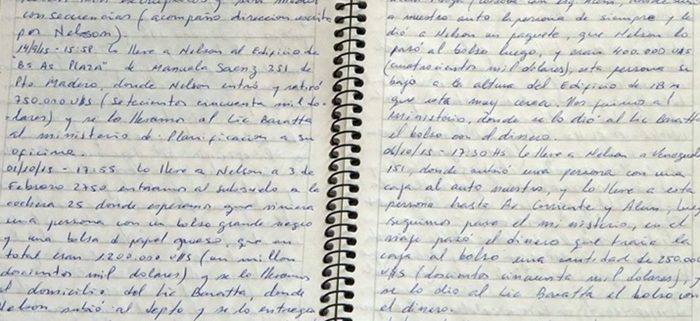 consecuencias (acompaño direccion escrita
por Nelson).
14/9/15 - 15:58 Lo lleve a Nelson al Edificio de
"Bs As PLAZA" de Manuela Saenz 351 de
Pto Madero, donde Nelson entró y retiró
750.000 U$S (setecientos cincuenta mil do-
lares) y se lo llevamos al Lic Baratta
al ministerio de Planificacion a su
oficina.
01/10/15 - 17:55 Lo lleve a Nelson a 3 de
Febrero 2750 entramos al subsuelo a la
cochera 25 donde esperamos que viniera
una persona con un bolso grande negro
y una bolsa de papel grueso, que en
total eran 1200.000 U$S (un millon
doscientos mil dolares) y se lo llevamos
al domicilio del Lic Baratta, donde
Nelson subió al depto y se lo entrego
a nuestro auto la persona de siempre y le
dió a Nelson un paquete, que Nelson lo
pasó al bolso luego, y eran 400.000 U$S
(cuatrocientos mil dolares), esta persona se
bajo a la altura del Edificio de IBM
que esta muy cerca. Nos fuimos al
Ministerio, donde se lo dió al Lic Baratta
el bolso con el dinero.
06/10/15 - 17:30 Hs Lo lleve a Nelson a Venezuela
151, donde subió una persona con una
caja al auto nuestro, y lo lleve a esta
persona hasta Av Corriente y Alem, luego
seguimos para el ministerio, en el
viaje pasó el dinero que traia la
caja al bolso una cantidad de 250.000
U$S (doscientos cincuenta mil dolares), y
se lo dio al Lic Baratta el bolso con
el dinero.